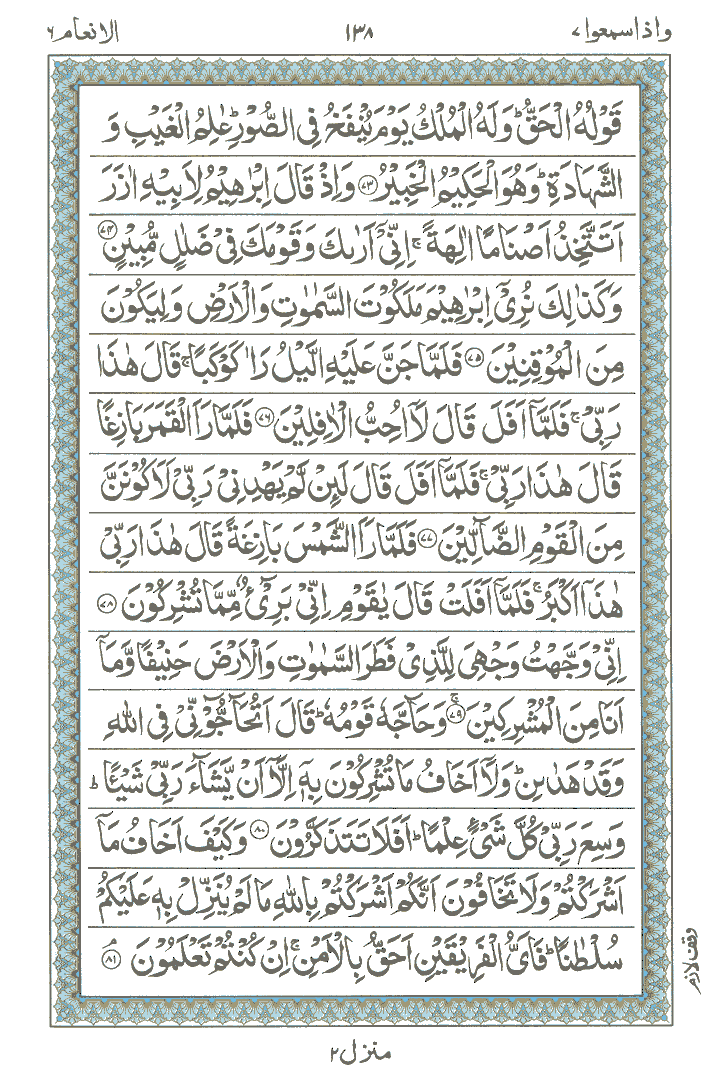 واذاسمعوا ۷ ۱۳۸ الانعام ۶
قَوْلُهُ الْحَقُّ ؕ وَلَهُ الْمُلْكُ يَوْمَ يُنْفَخُ فِى الصُّوْرِ ؕ عٰلِمُ الْغَيْبِ وَ
الشَّهَادَةِ ؕ وَهُوَ الْحَكِيْمُ الْخَبِيْرُ ﴿۷۳﴾ وَاِذْ قَالَ اِبْرٰهِيْمُ لِاَبِيْهِ اٰزَرَ
اَتَتَّخِذُ اَصْنَامًا اٰلِهَةً ۚ اِنِّىْۤ اَرٰىكَ وَقَوْمَكَ فِىْ ضَلٰلٍ مُّبِيْنٍ ﴿۷۴﴾
وَكَذٰلِكَ نُرِىْۤ اِبْرٰهِيْمَ مَلَكُوْتَ السَّمٰوٰتِ وَالْاَرْضِ وَلِيَكُوْنَ
مِنَ الْمُوْقِنِيْنَ ﴿۷۵﴾ فَلَمَّا جَنَّ عَلَيْهِ الَّيْلُ رَاٰ كَوْكَبًا ۚ قَالَ هٰذَا
رَبِّىْ ۚ فَلَمَّاۤ اَفَلَ قَالَ لَاۤ اُحِبُّ الْاٰفِلِيْنَ ﴿۷۶﴾ فَلَمَّا رَاَ الْقَمَرَ بَازِغًا
قَالَ هٰذَا رَبِّىْ ۚ فَلَمَّاۤ اَفَلَ قَالَ لَئِنْ لَّمْ يَهْدِنِىْ رَبِّىْ لَاَكُوْنَنَّ
مِنَ الْقَوْمِ الضَّآلِّيْنَ ﴿۷۷﴾ فَلَمَّا رَاَ الشَّمْسَ بَازِغَةً قَالَ هٰذَا رَبِّىْ
هٰذَاۤ اَكْبَرُ ۚ فَلَمَّاۤ اَفَلَتْ قَالَ يٰقَوْمِ اِنِّىْ بَرِىْٓءٌ مِّمَّا تُشْرِكُوْنَ ﴿۷۸﴾
اِنِّىْ وَجَّهْتُ وَجْهِىَ لِلَّذِىْ فَطَرَ السَّمٰوٰتِ وَالْاَرْضَ حَنِيْفًا وَّمَاۤ
اَنَا مِنَ الْمُشْرِكِيْنَ ۚ﴿۷۹﴾ وَحَآجَّهٗ قَوْمُهٗ ؕ قَالَ اَتُحَآجُّوْٓنِّىْ فِى اللّٰهِ
وَقَدْ هَدٰىنِ ؕ وَلَاۤ اَخَافُ مَا تُشْرِكُوْنَ بِهٖۤ اِلَّاۤ اَنْ يَّشَآءَ رَبِّىْ شَيْئًا ؕ
وَسِعَ رَبِّىْ كُلَّ شَىْءٍ عِلْمًا ؕ اَفَلَا تَتَذَكَّرُوْنَ ﴿۸۰﴾ وَكَيْفَ اَخَافُ مَاۤ
اَشْرَكْتُمْ وَلَا تَخَافُوْنَ اَنَّكُمْ اَشْرَكْتُمْ بِاللّٰهِ مَا لَمْ يُنَزِّلْ بِهٖ عَلَيْكُمْ
سُلْطٰنًا ؕ فَاَىُّ الْفَرِيْقَيْنِ اَحَقُّ بِالْاَمْنِ ۚ اِنْ كُنْتُمْ تَعْلَمُوْنَ ۘ﴿۸۱﴾
وقف لازم
منزل ۲